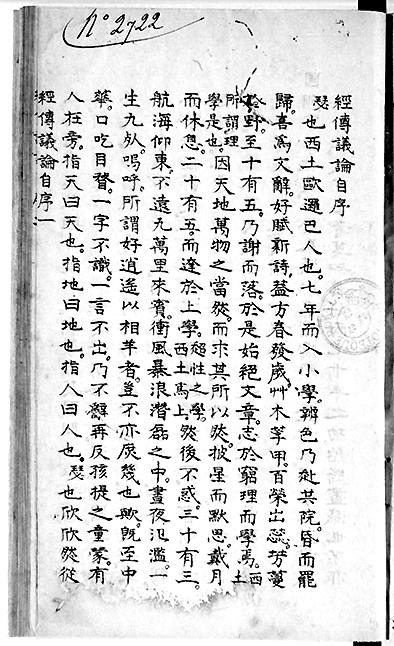 Nº 2722
經傳議論自序
瑟也西土歐邏巴人也。七年而入小學。辨色乃赴其院。昏而罷
歸。喜為文辭。好賦新詩。益方春發歲。艸木莩甲。百榮出蕊。芳蔓
於野。至十有五。乃謝而落。於是始絕文章。志於窮理而學焉。西土
所謂理學是也。因天地萬物之當然。而求其所以然。披星而默思。戴月
而休息。二十有五。而達於上學。超性之學西土馬上。然後不惑。三十有三。
航海仰東。不遠九萬里來賓。衝風暴浪潛磊之中。晝夜氾濫。一
生九死。嗚呼。所謂好逍遙以相羊者。豈不亦庶幾也歟。既至中
華。口吃目瞀。一字不識。一言不出。乃不再反孩提之童蒙。有
人在旁。指天曰天也。指地曰地也。指人曰人也。瑟也欣欣然從
經傳議論自序一